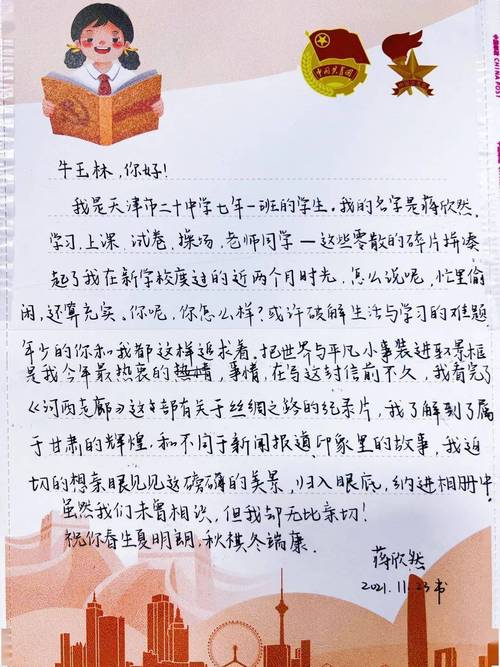 中国共青团
中国邮政 CHINA POST
牛玉林，你好！
我是天津市二十中学七年一班的学生。我的名字是蒋欣然。
学习、上课、试卷、操场、老师同学一这些零散的碎片拼凑
起了我在新学校度过的近两个月时光，怎么说呢，忙里偷
闲，还算充实。你呢，你怎么样？或许破解生活与学习的难题
年少的你和我都这样追求着。把世界与平凡小事装进取景框
是我今年最热衷的事情，在写这封信前不久，我看完了
《河西走廊》这部有关于丝绸之路的纪录片，我了解到了属
于甘肃的辉煌，和不同于新闻报道、印象里的故事，我迫
切的想亲眼见见这磅礴的美景，归入眼底，纳进相册中
虽然我们未曾相识，但我却无比亲切！
祝你春生夏明朗，秋祺冬端康。
蒋欣然
2021.11.23书